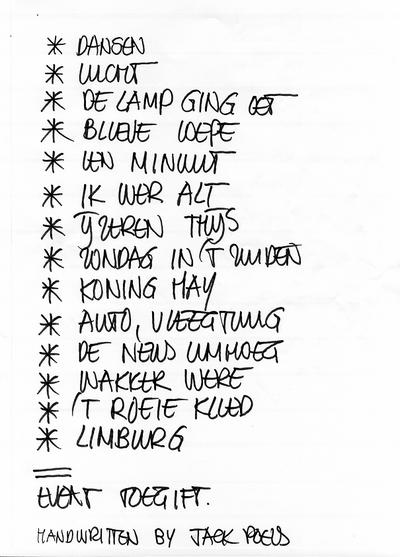 * DANSEN
* LUCHT
* DE LAMP GING OET
* BLIEVE LOEPE
* EEN MINUUT
* IK WER ALT
* IJZEREN THIJS
* ZONDAG IN 'T ZUIDEN
* KONING MAY
* AUTO, VLEEGTUUG
* DE NEUS UMHOEG
* WAKKER WERE
* 'T ROEIE KLEED
* LIMBURG
EVENT TOEGIFT.
HANDWRITTEN BY JACK POELS